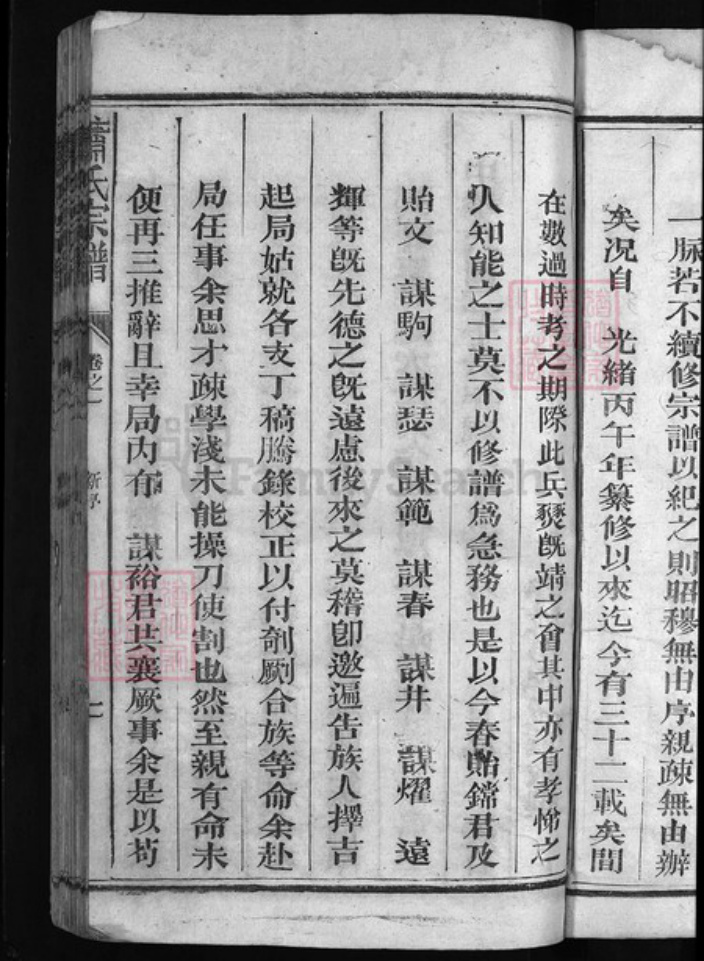 一脉若不續修宗譜以紀之則昭穆無由序親疎無由辦
矣況自 光緒丙午年纂修以來迄今有三十二載矣間
在數過時考之期際此兵燹旣靖之會其中亦有孝悌之
人知能之士莫不以修譜爲急務也是以今春貽鐺君及
貽文 謀駒 謀瑟 謀範 謀春 謀井 謀燿 遠
輝等旣先德之旣遠慮後來之莫稽卽邀遍告族人擇吉
起局姑就各支丁稿騰錄校正以付剞劂合族等命余赴
局任事余思才疎學淺未能操刀使割也然至親有命未
便再三推辭且幸局內有 謀裕君共襄厥事余是以苟
蕭氏宗譜 卷之一 新序 二
FamilySearch